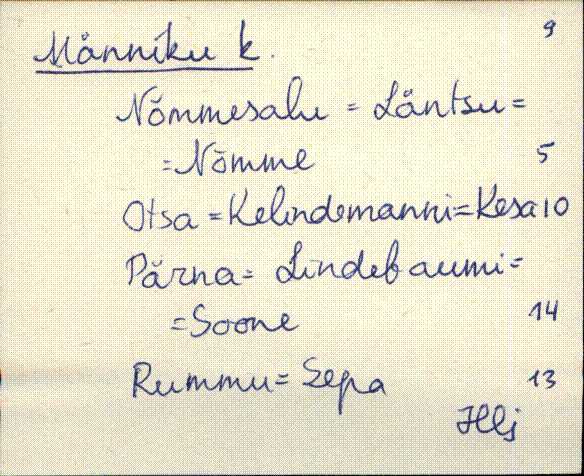 9
Männiku k.
Nõmmesalu = Läntsu =
= Nõmme 5
Otsa = Kelindemanni = Kesa 10
Pärna = Lindebaumi =
= Soone 14
Rummu = Sepa 13
Hlj